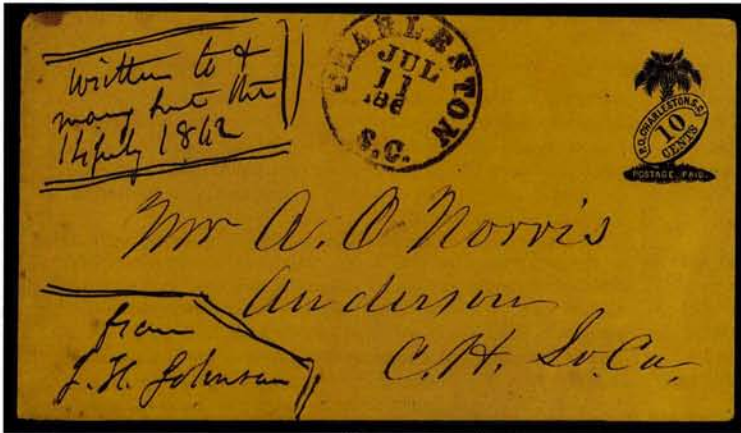 written to &
many
14 July 1862
CHARLESTON
JUL
11
186
S.C.
P.O. CHARLESTON, S.C.
10
CENTS
POSTAGE PAID.
Mr A. O Norris
Anderson
C.H. So. Ca.
from
J. H. Johnson